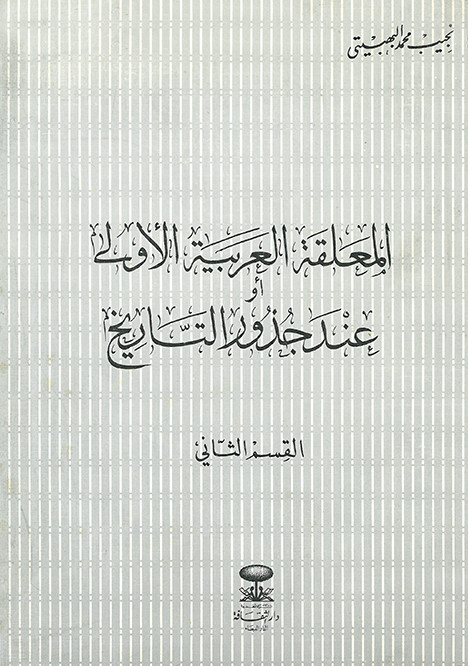 نجيب محمد البهبيتي
المعلقة العربية الأولى
أو
عِنْدَ جُذُورِ التَّارِيخِ
القِسم الثّاني
دار الثقافة
الدار البيضاء